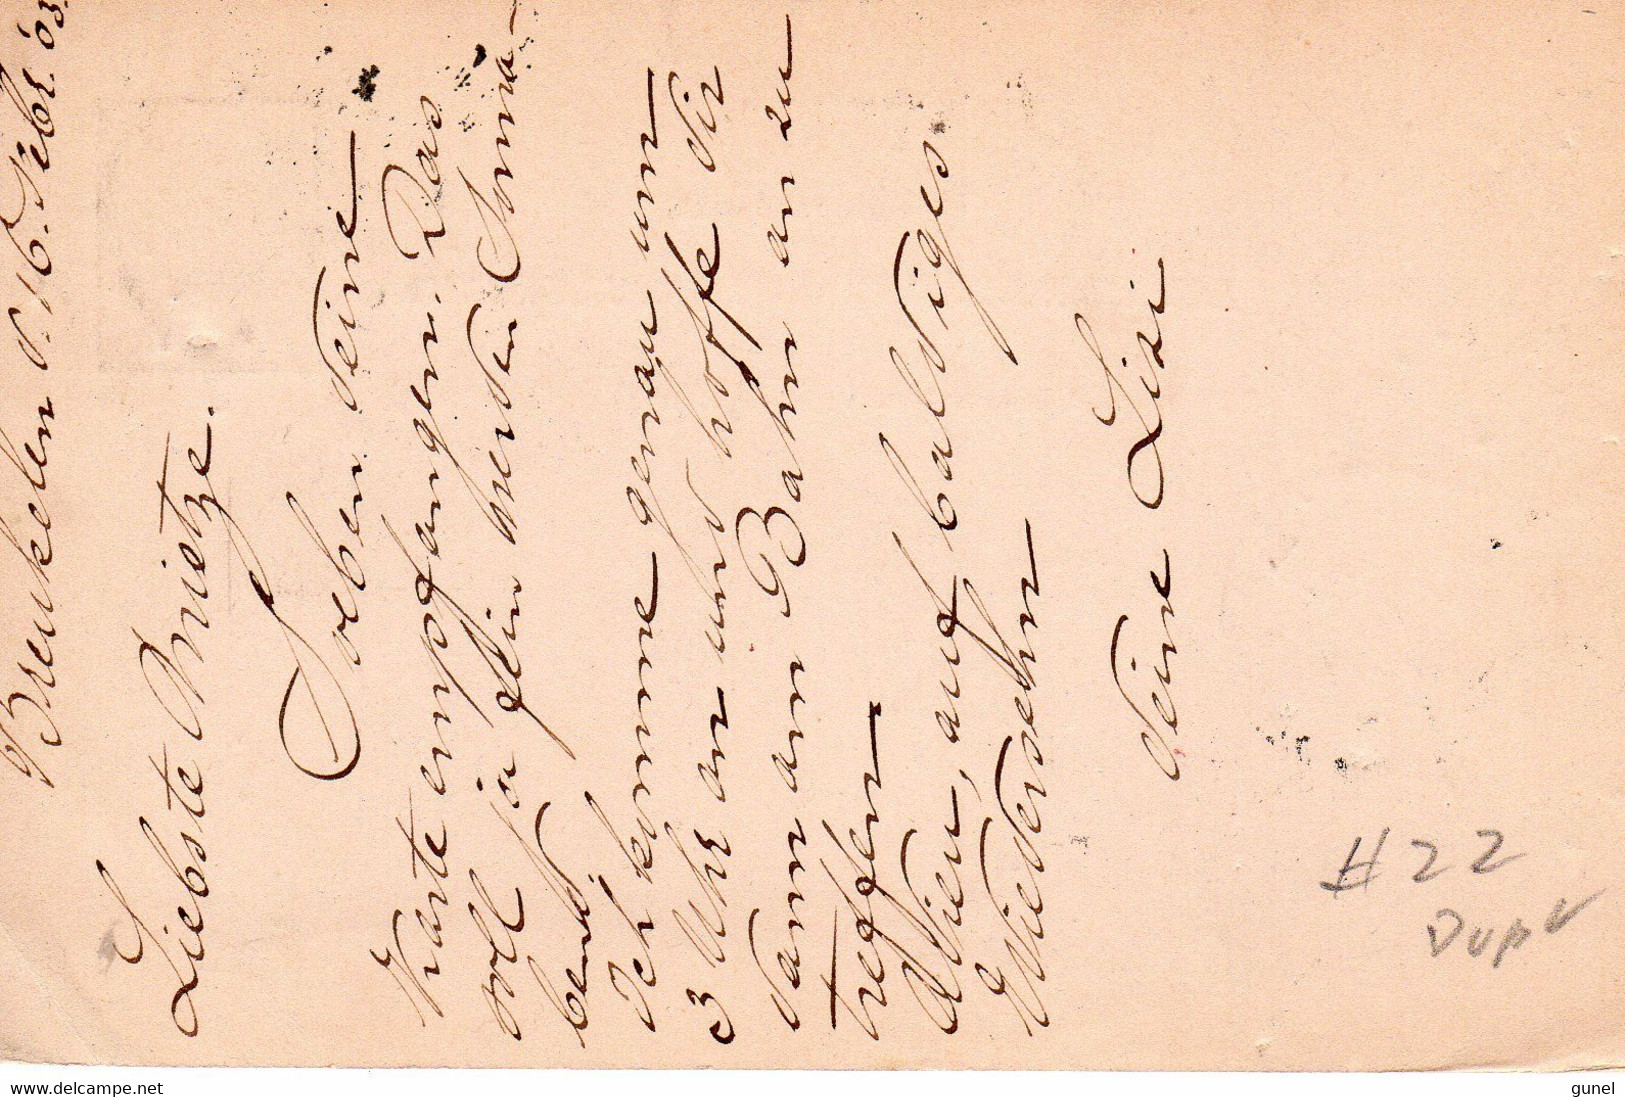 Breukelen d. 16. Febr. 03.
Liebste Mietze.
Soeben deine
Karte empfangen. Das
soll ja fein werden Sonna-
bend.
Ich komme genau um
3 Uhr an und hoffe dir
dann am Bahn an zu
treffen
Adieu, auf baldiges
Wiedersehn
deine Lisi
# 22
Dupl
www.delcampe.net
gunel